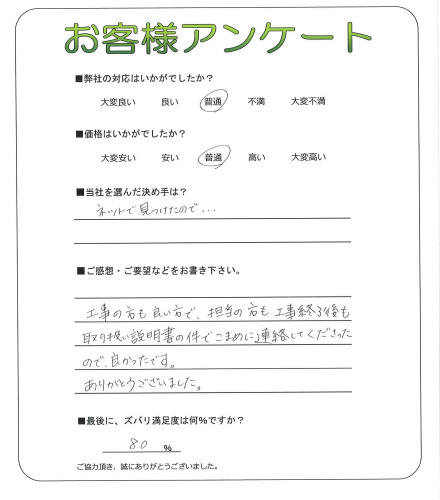 お客様アンケート
■弊社の対応はいかがでしたか？
大変良い 良い 普通 不満 大変不満
■価格はいかがでしたか？
大変安い 安い 普通 高い 大変高い
■当社を選んだ決め手は？
ネットで見つけたので...
■ご感想・ご要望などをお書き下さい。
工事の方も良い方で、担当の方も工事終了後も
取り扱い説明書の件でこまめに連絡してくださった
ので、良かったです。
ありがとうございました。
■最後に、ズバリ満足度は何%ですか？
80 %
ご協力頂き、誠にありがとうございました。